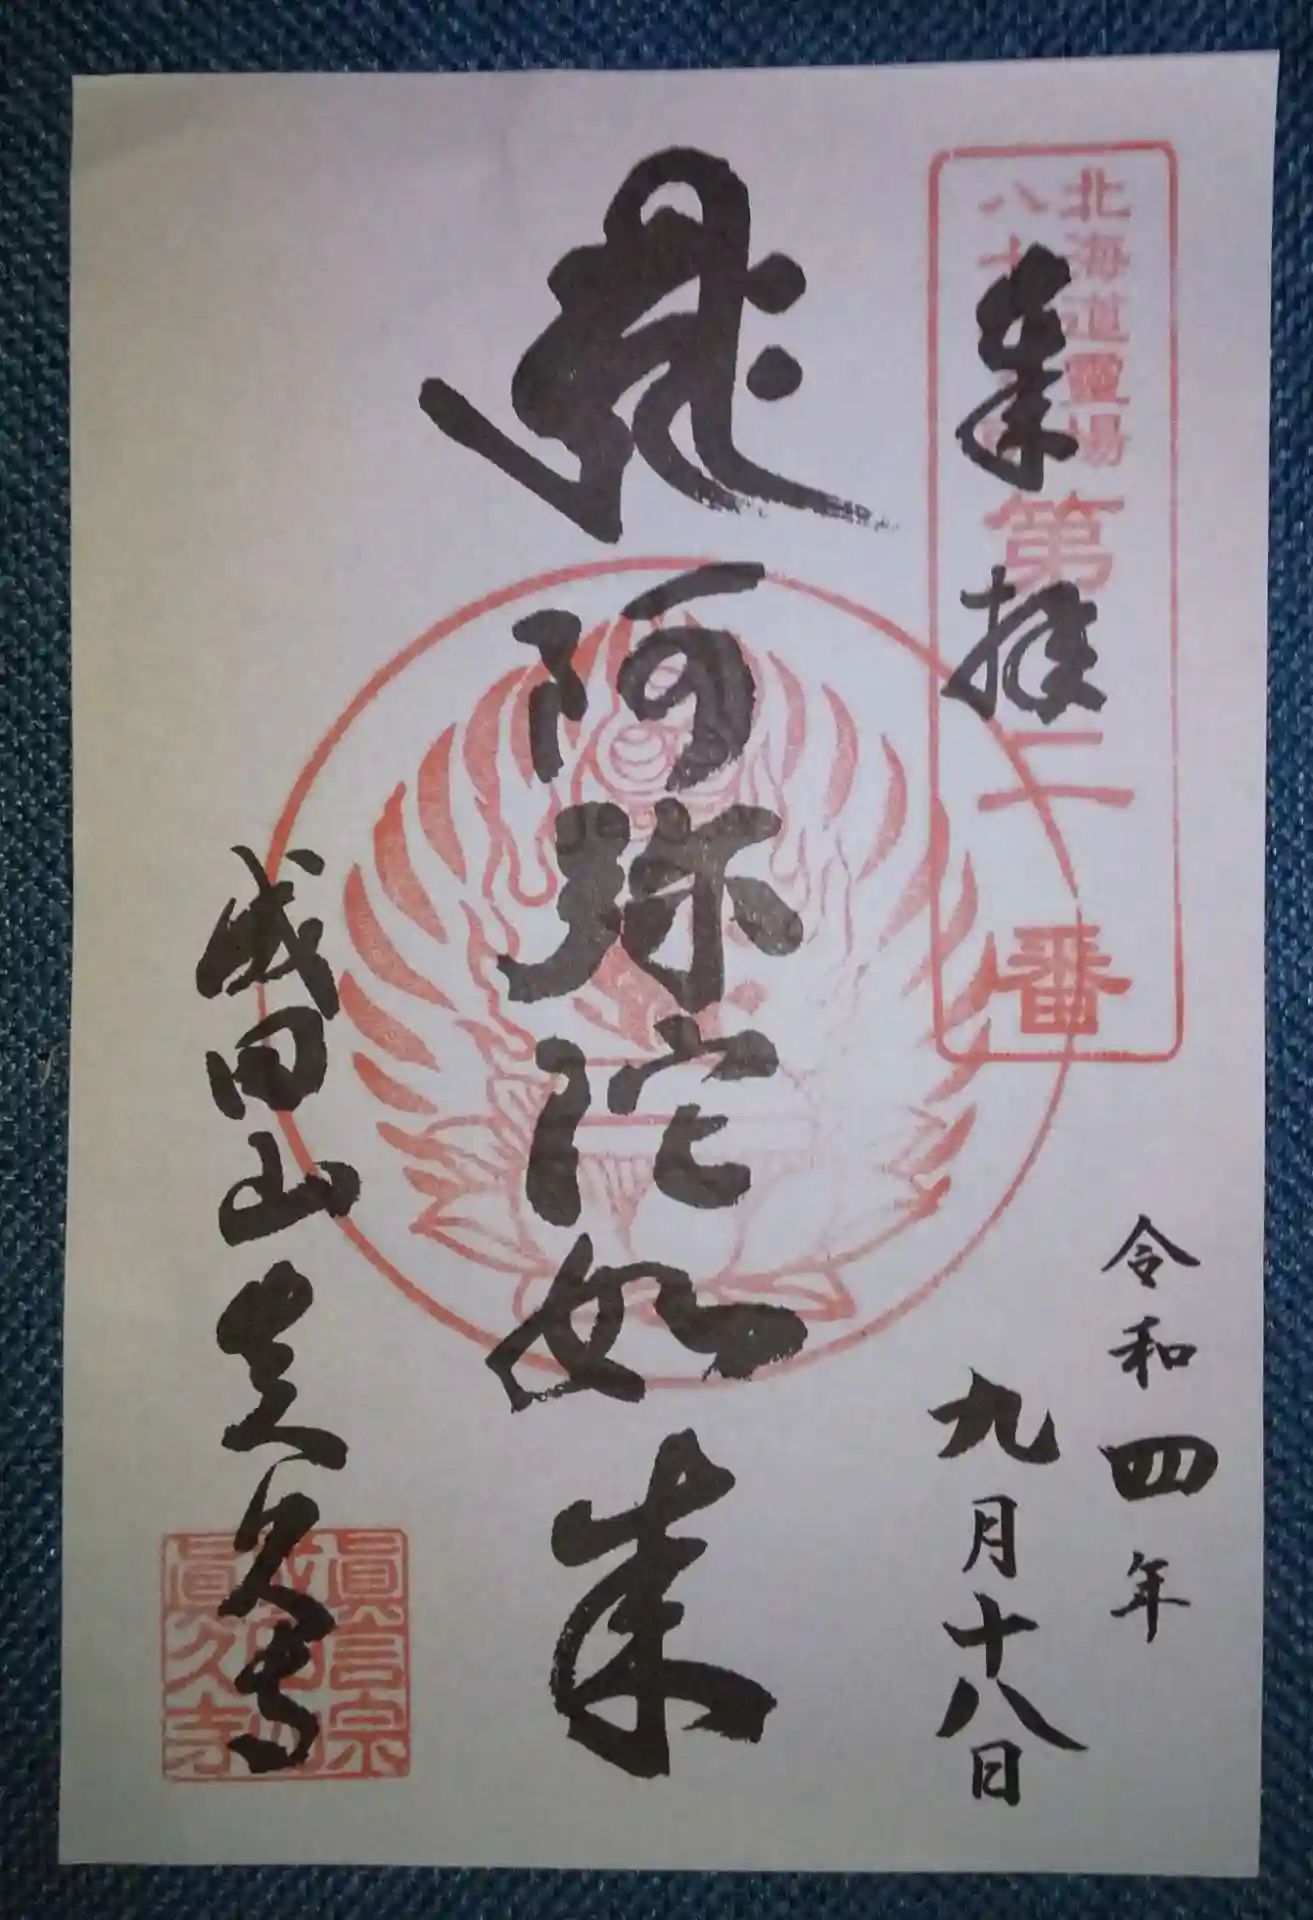 北海道霊場
八十
第二番
奉拝
令和四年
九月十八日
阿弥陀如来
成田山真久寺
眞言宗
成田山
眞久寺